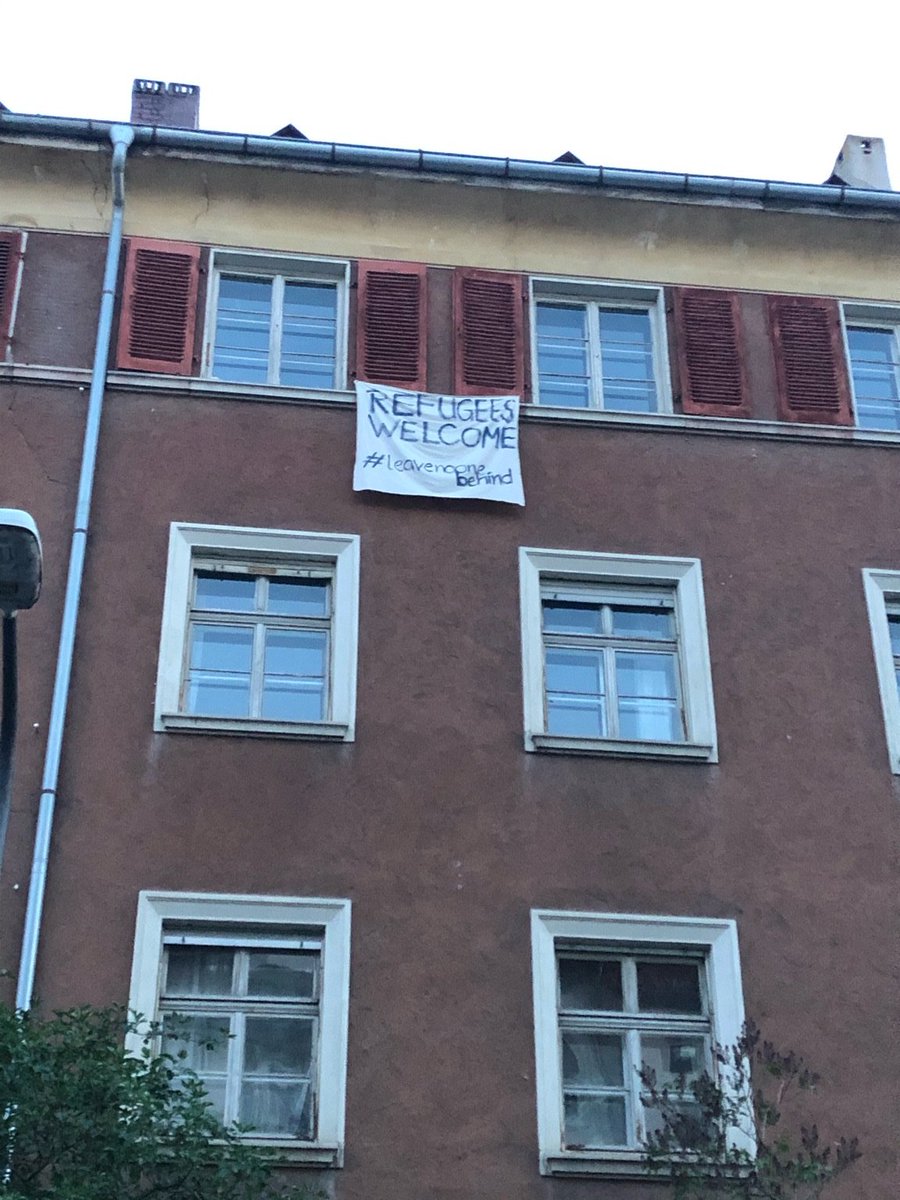 REFUGEES
WELCOME
#leavenoone
behind